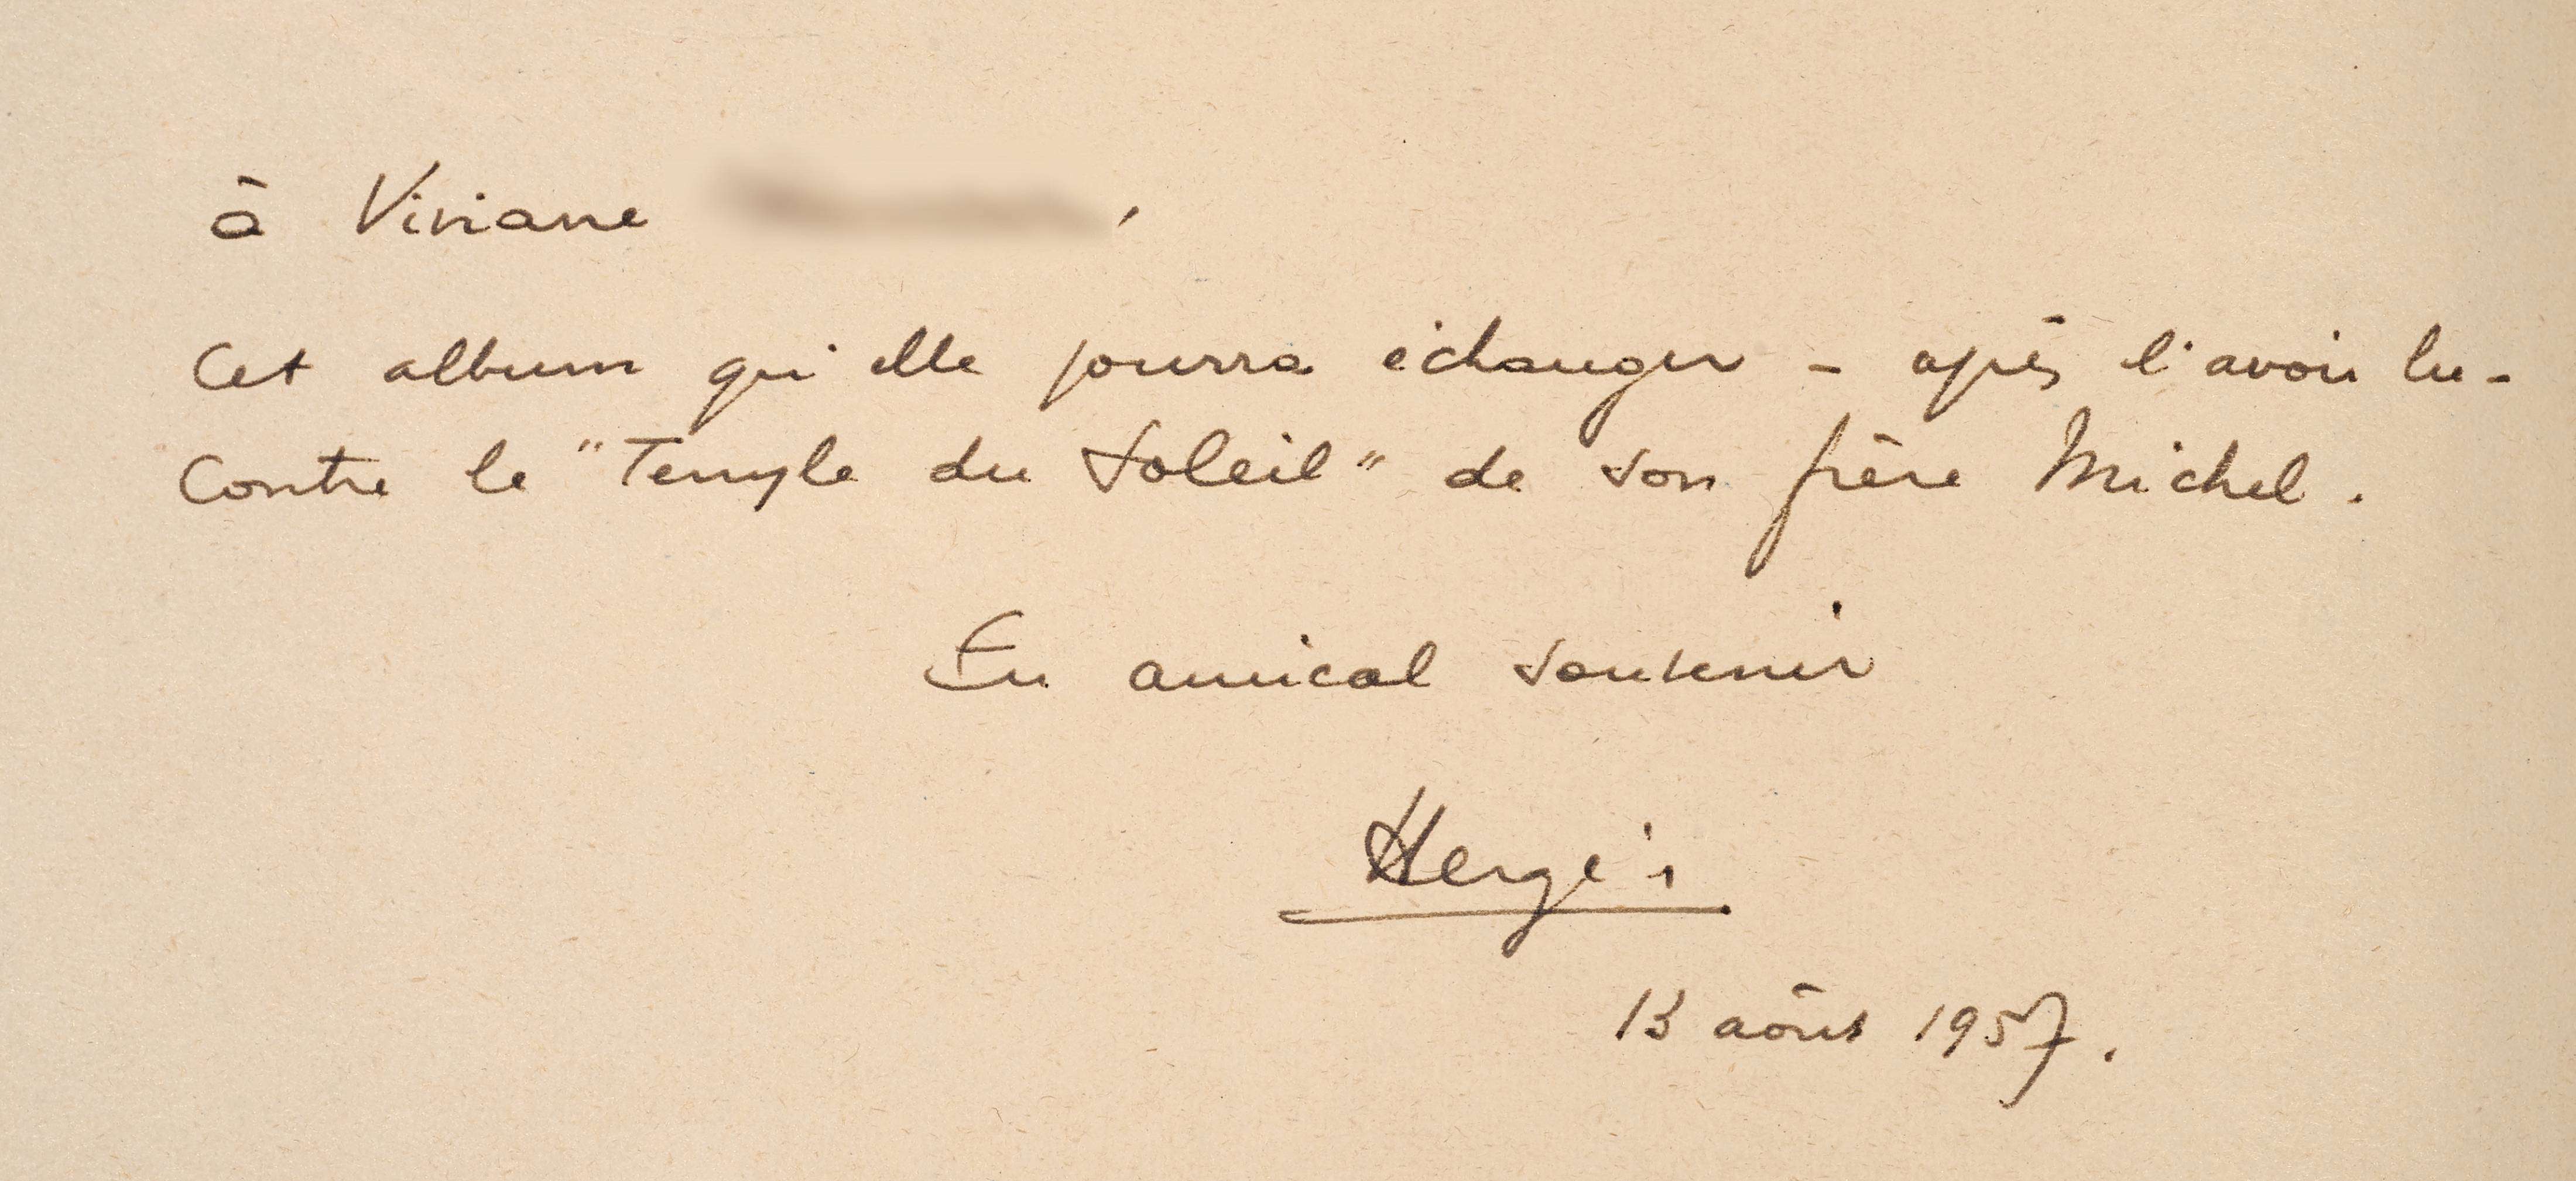 à Viviane ,
Cet album qu'elle pourra échanger - après l'avoir lu -
Contre le "Temple du Soleil" de son frère Michel.
En amical souvenir
Hergé
13 août 1957.